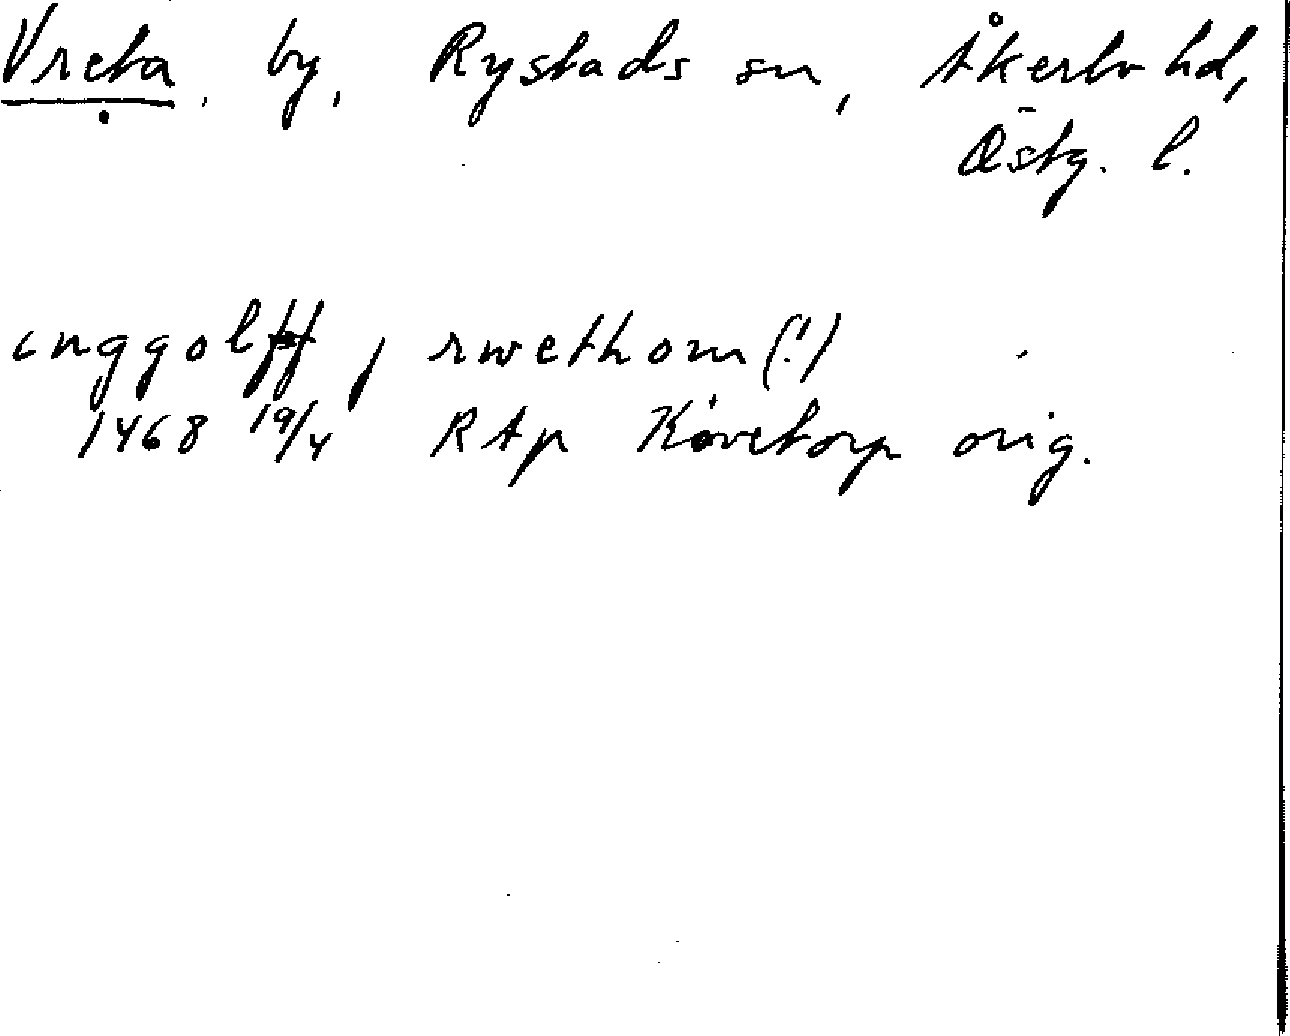 Vreta, by, Rystads sn, Åkerbo hd,
Östg. l.
inggolff j rwethom (!)
1468 19/4 RAp Kåvetorp orig.